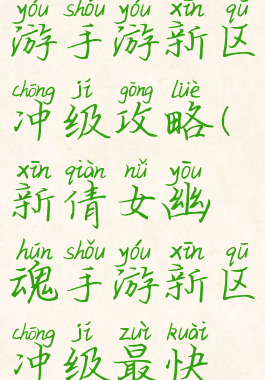 yóu shǒu yóu xīn qū
游手游新区
chōng jí gōng lüè
冲级攻略(
xīn qiàn nǚ yōu
新倩女幽
hún shǒu yóu xīn qū
魂手游新区
chōng jí zuì kuài
冲级最快